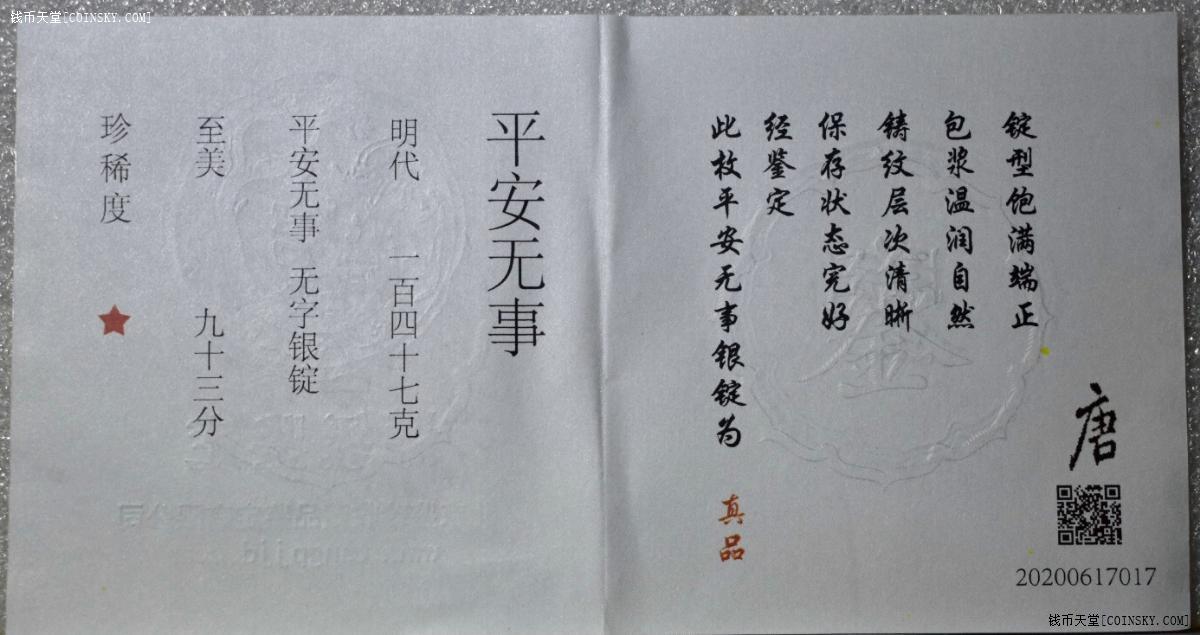 钱币天堂[COINSKY.COM]
锭型饱满端正
包浆温润自然
铸纹层次清晰
保存状态完好
经鉴定
此枚平安无事银锭为
真品
唐
20200617017
平安无事
明代 一百四十七克
平安无事 无字银锭
至美 九十三分
珍稀度
鉴
钱币天堂[COINSKY.COM]